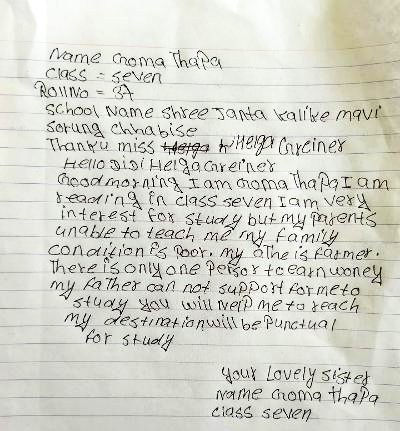 Name Groma Thapa
Class = seven
Roll No = 37
School Name Shree Janta kalike mavi
Sorung Chhabise
Thanku miss Helga Greiner
Hello Didi Helga Greiner
Good morning I am Groma Thapa I am
reading in class seven I am very
interest for study but my parents
unable to teach me my family
condition is poor. my athe is farmer.
there is only one person to earn woney
my father can not support for me to
study you will help me to reach
my destination will be punctual
for study
your Lovely sister
Name Groma Thapa
class seven